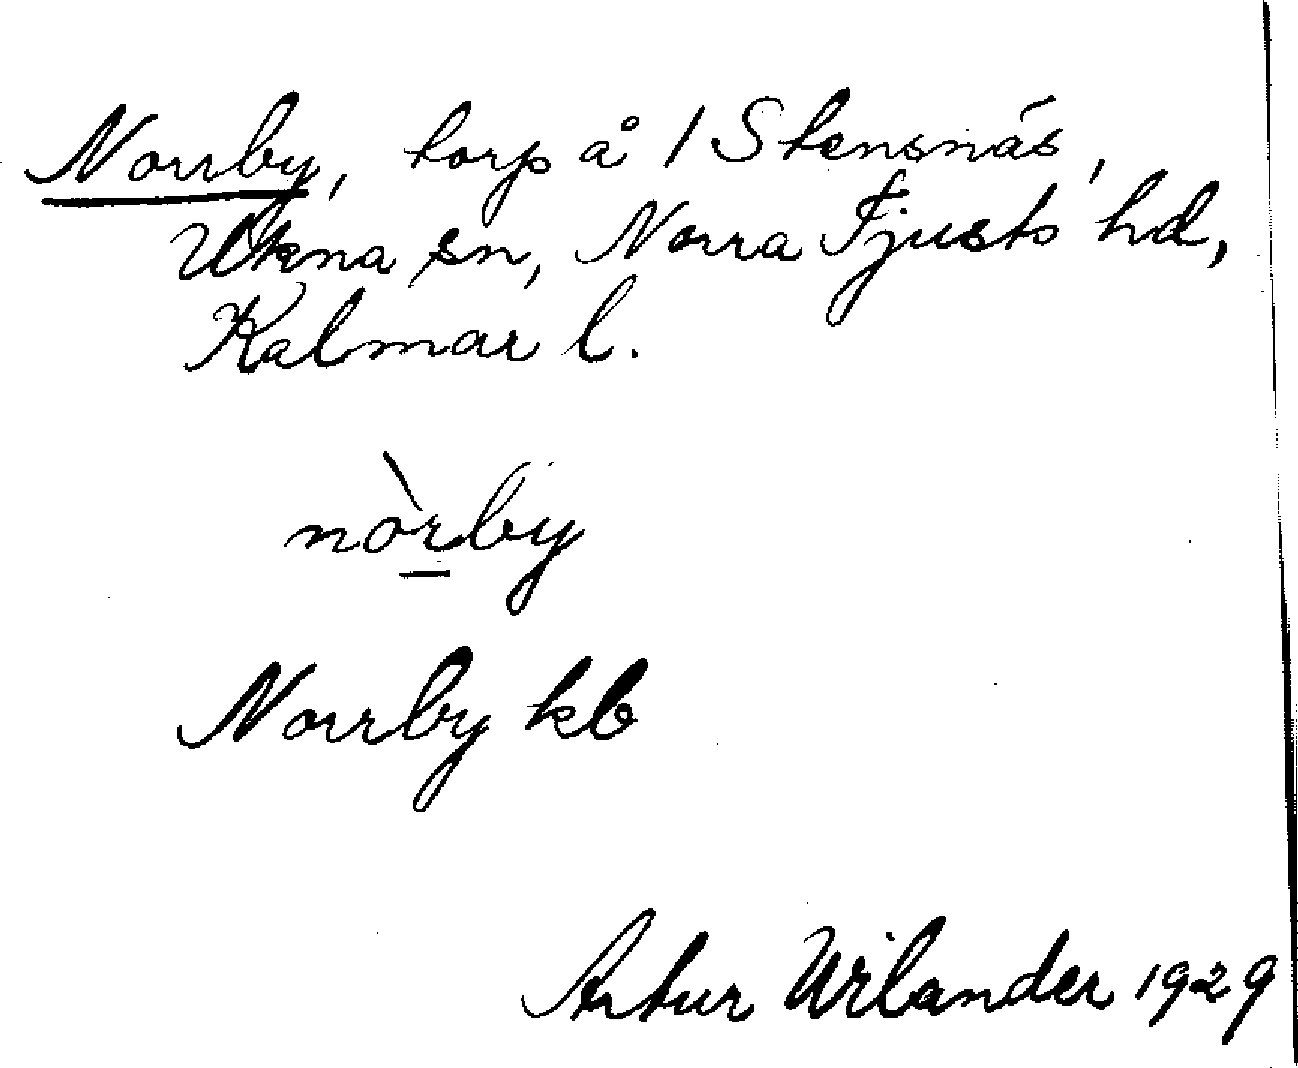 Norrby, torp å 1 Stensnäs,
Ukna sn, Norra Tjusts hd,
Kalmar l.
nòrby
Norrby kb
Artur Wilander 1929